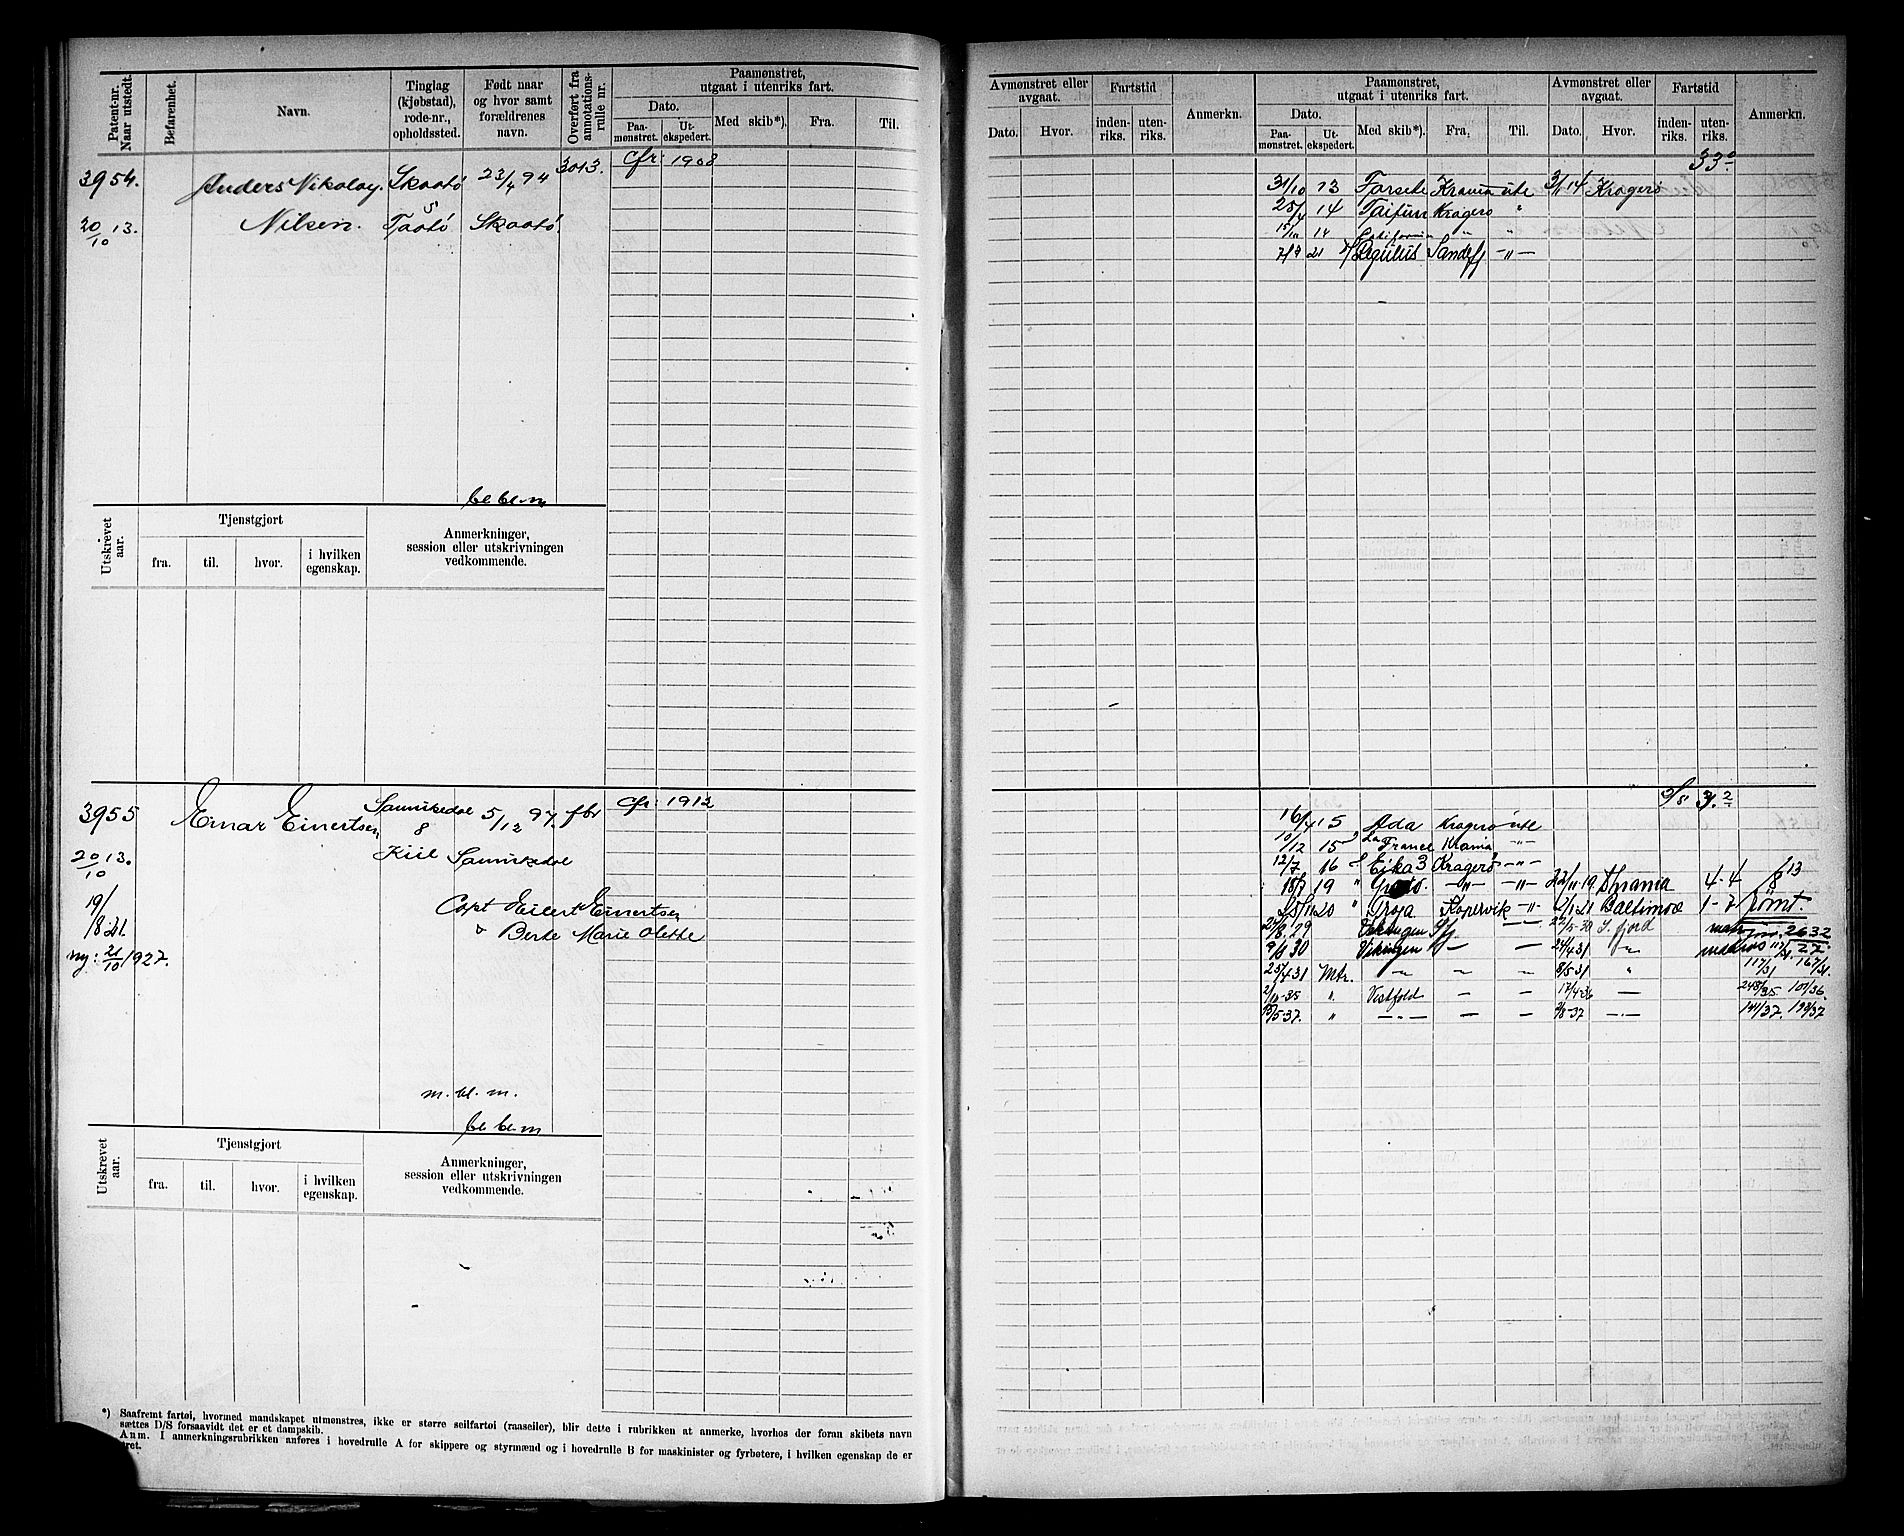 Patent-nr. Naar utstedt.
Befarenhet.
Navn.
Tinglag (kjøbstad), rode-nr., opholdssted.
Født naar og hvor samt forældrenes navn.
Overført fra annotations-rulle nr.
Paamønstret, utgaat i utenriks fart.
Dato.
Paa-mønstret.
Ut-ekspedert.
Med skib*).
Fra.
Til.
Avmønstret eller avgaat.
Dato.
Hvor.
Fartstid
inden-riks.
uten-riks.
Anmerkn.
Paamønstret, utgaat i utenriks fart.
Dato.
Paa-mønstret.
Ut-ekspedert.
Med skib*).
Fra,
Til.
Avmønstret eller avgaat.
Dato.
Hvor.
Fartstid
inden-riks.
uten-riks.
Anmerkn.
3954. Anders Nikolay Skaatø 23/4 94 3013. Cfr: 1908
5
20/10 13. Nilsen. Taatø Skaatø.
33
31/10 13 Forsete Krania ute 3/1 14 Kragerø
25/4 14 Taifun Kragerø "
15/11 14 California " "
7/9 21 Regulus Sandefj -"-
bl. bl. m
Utskrevet aar.
Tjenstgjort
fra.
til.
hvor.
i hvilken egenskap.
Anmerkninger, session eller utskrivningen vedkommende.
3955 Einar Einertsen Sannikedal 5/12 97. fbr Cfr: 1912
8
20/10 13. Kiil Sannikedal
19/8 21. Capt Eilert Einertsen
" Berte Marie Olette
ny: 21/10 1927.
16/4 15 Ada Kragerø ute
10/12 15 La France Krania -"-
12/7 16 Eika 3 Kragerø -"-
18/7 19 " -"- -"- 22/11-19 4-4
25/11 20 " Troja Kopervik -"- 2/1 21 Baltimore 1-7 rømt.
27/8 29 Vikingen Sfj 22/5-30 S. fjord matr 2632
9/8 30 Vikingen - - 24/4 31 27
25/4 31 Mtr. - - - 8/5 31 " 117/31 167/31.
2/10-35 " Vestfold - - 17/4-36 - 248/35 101/36.
15/5-37. " -"- - - 2/8-37 -"- 141/37. 193/37
m. bl. m.
bl. bl. m
Utskrevet aar.
Tjenstgjort
fra.
til.
hvor.
i hvilken egenskap.
Anmerkninger, session eller utskrivningen vedkommende.
*) Saafremt fartøi, hvormed mandskapet utmønstres, ikke er større seilfartøi (raaseiler), blir dette i rubrikken at anmerke, hvorhos der foran skibets navn
sættes D/S forsaavidt det er et dampskib.
Anm. I anmerkningsrubrikken anføres i hovedrulle A for skippere og styrmænd og i hovedrulle B for maskinister og fyrbøtere, i hvilken egenskap de er